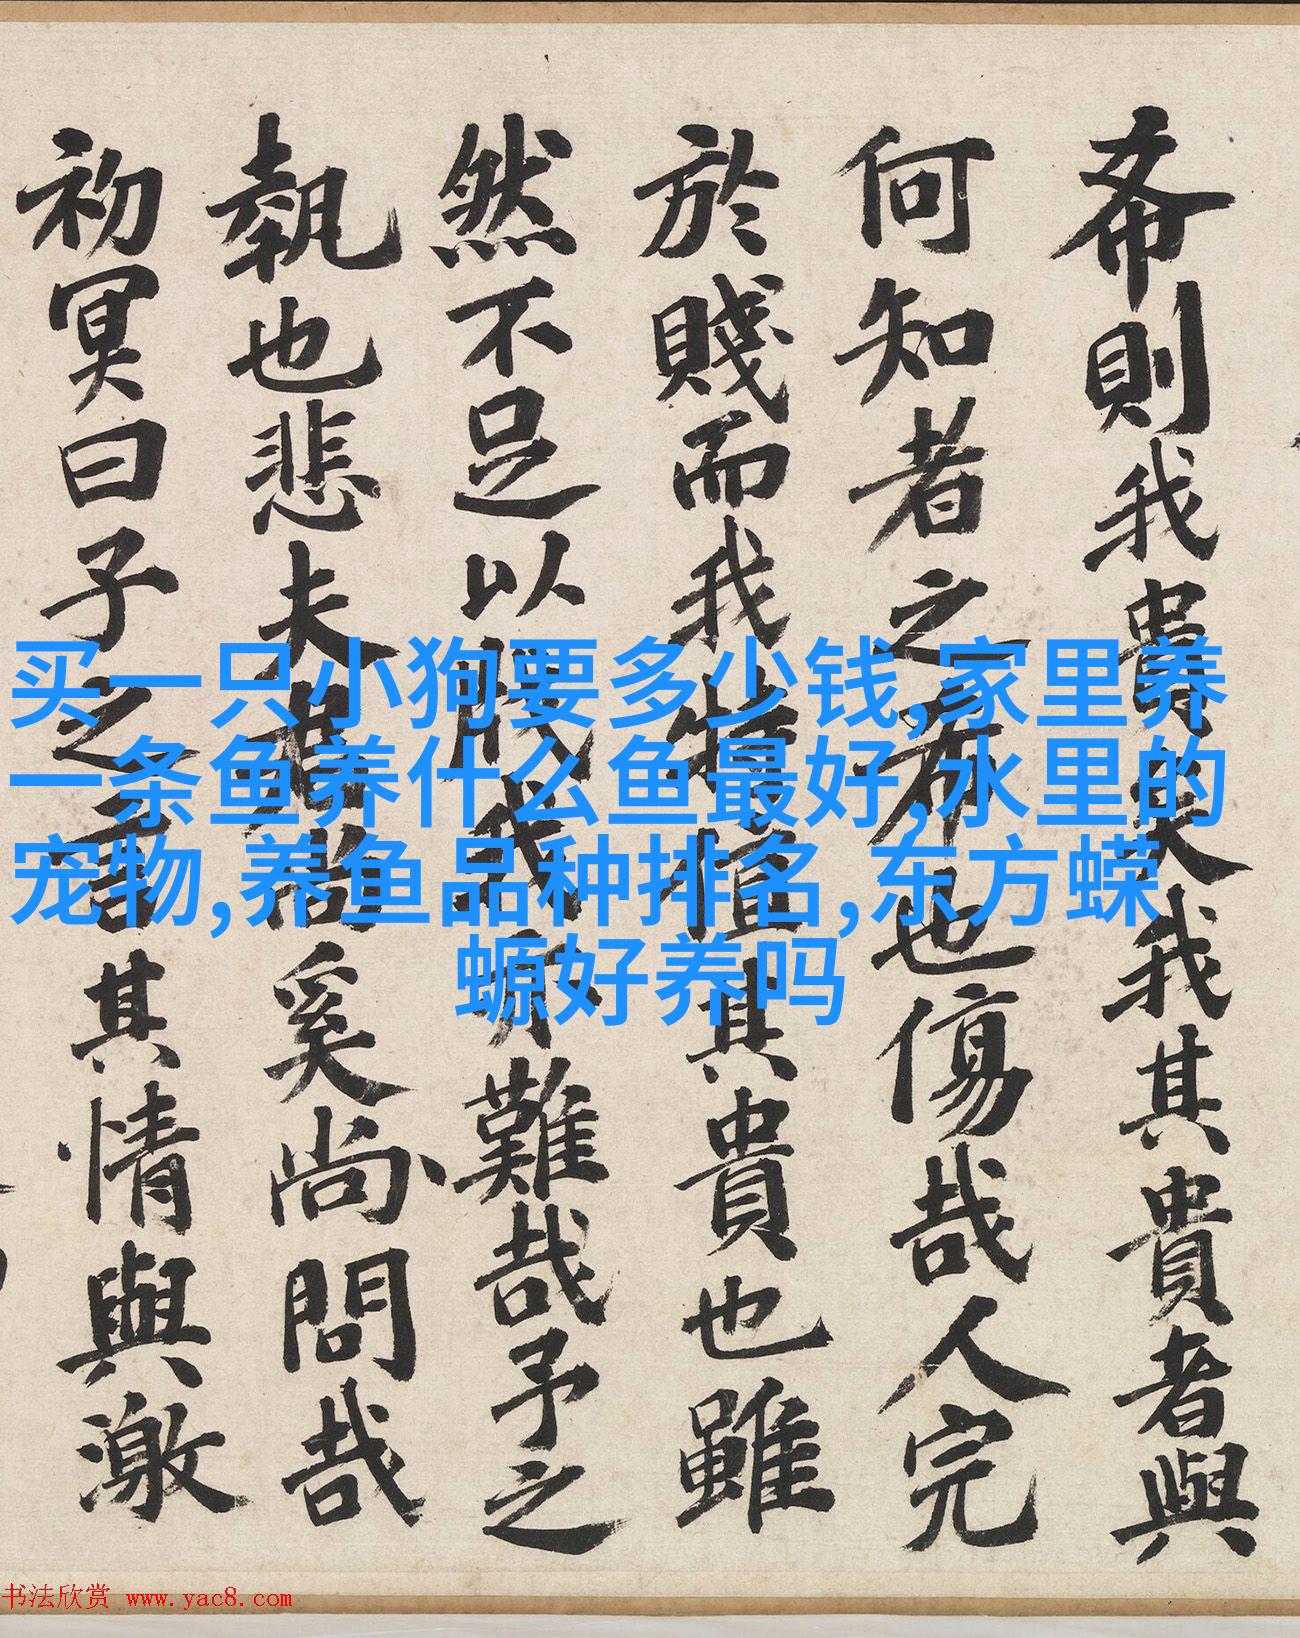 希則我貴矣我其貴者與
何知者之希也傷哉人完
於賤而我特惜其貴也雖
然不足以戕我亦難哉予之
執也悲夫惟冶奚尚問哉
初冥曰子之言其情與激
买一只小狗要多少钱,家里养
一条鱼养什么鱼最好,水里的
宠物,养鱼品种排名,东方蝾
螈好养吗
书法欣赏 www.yac8.com